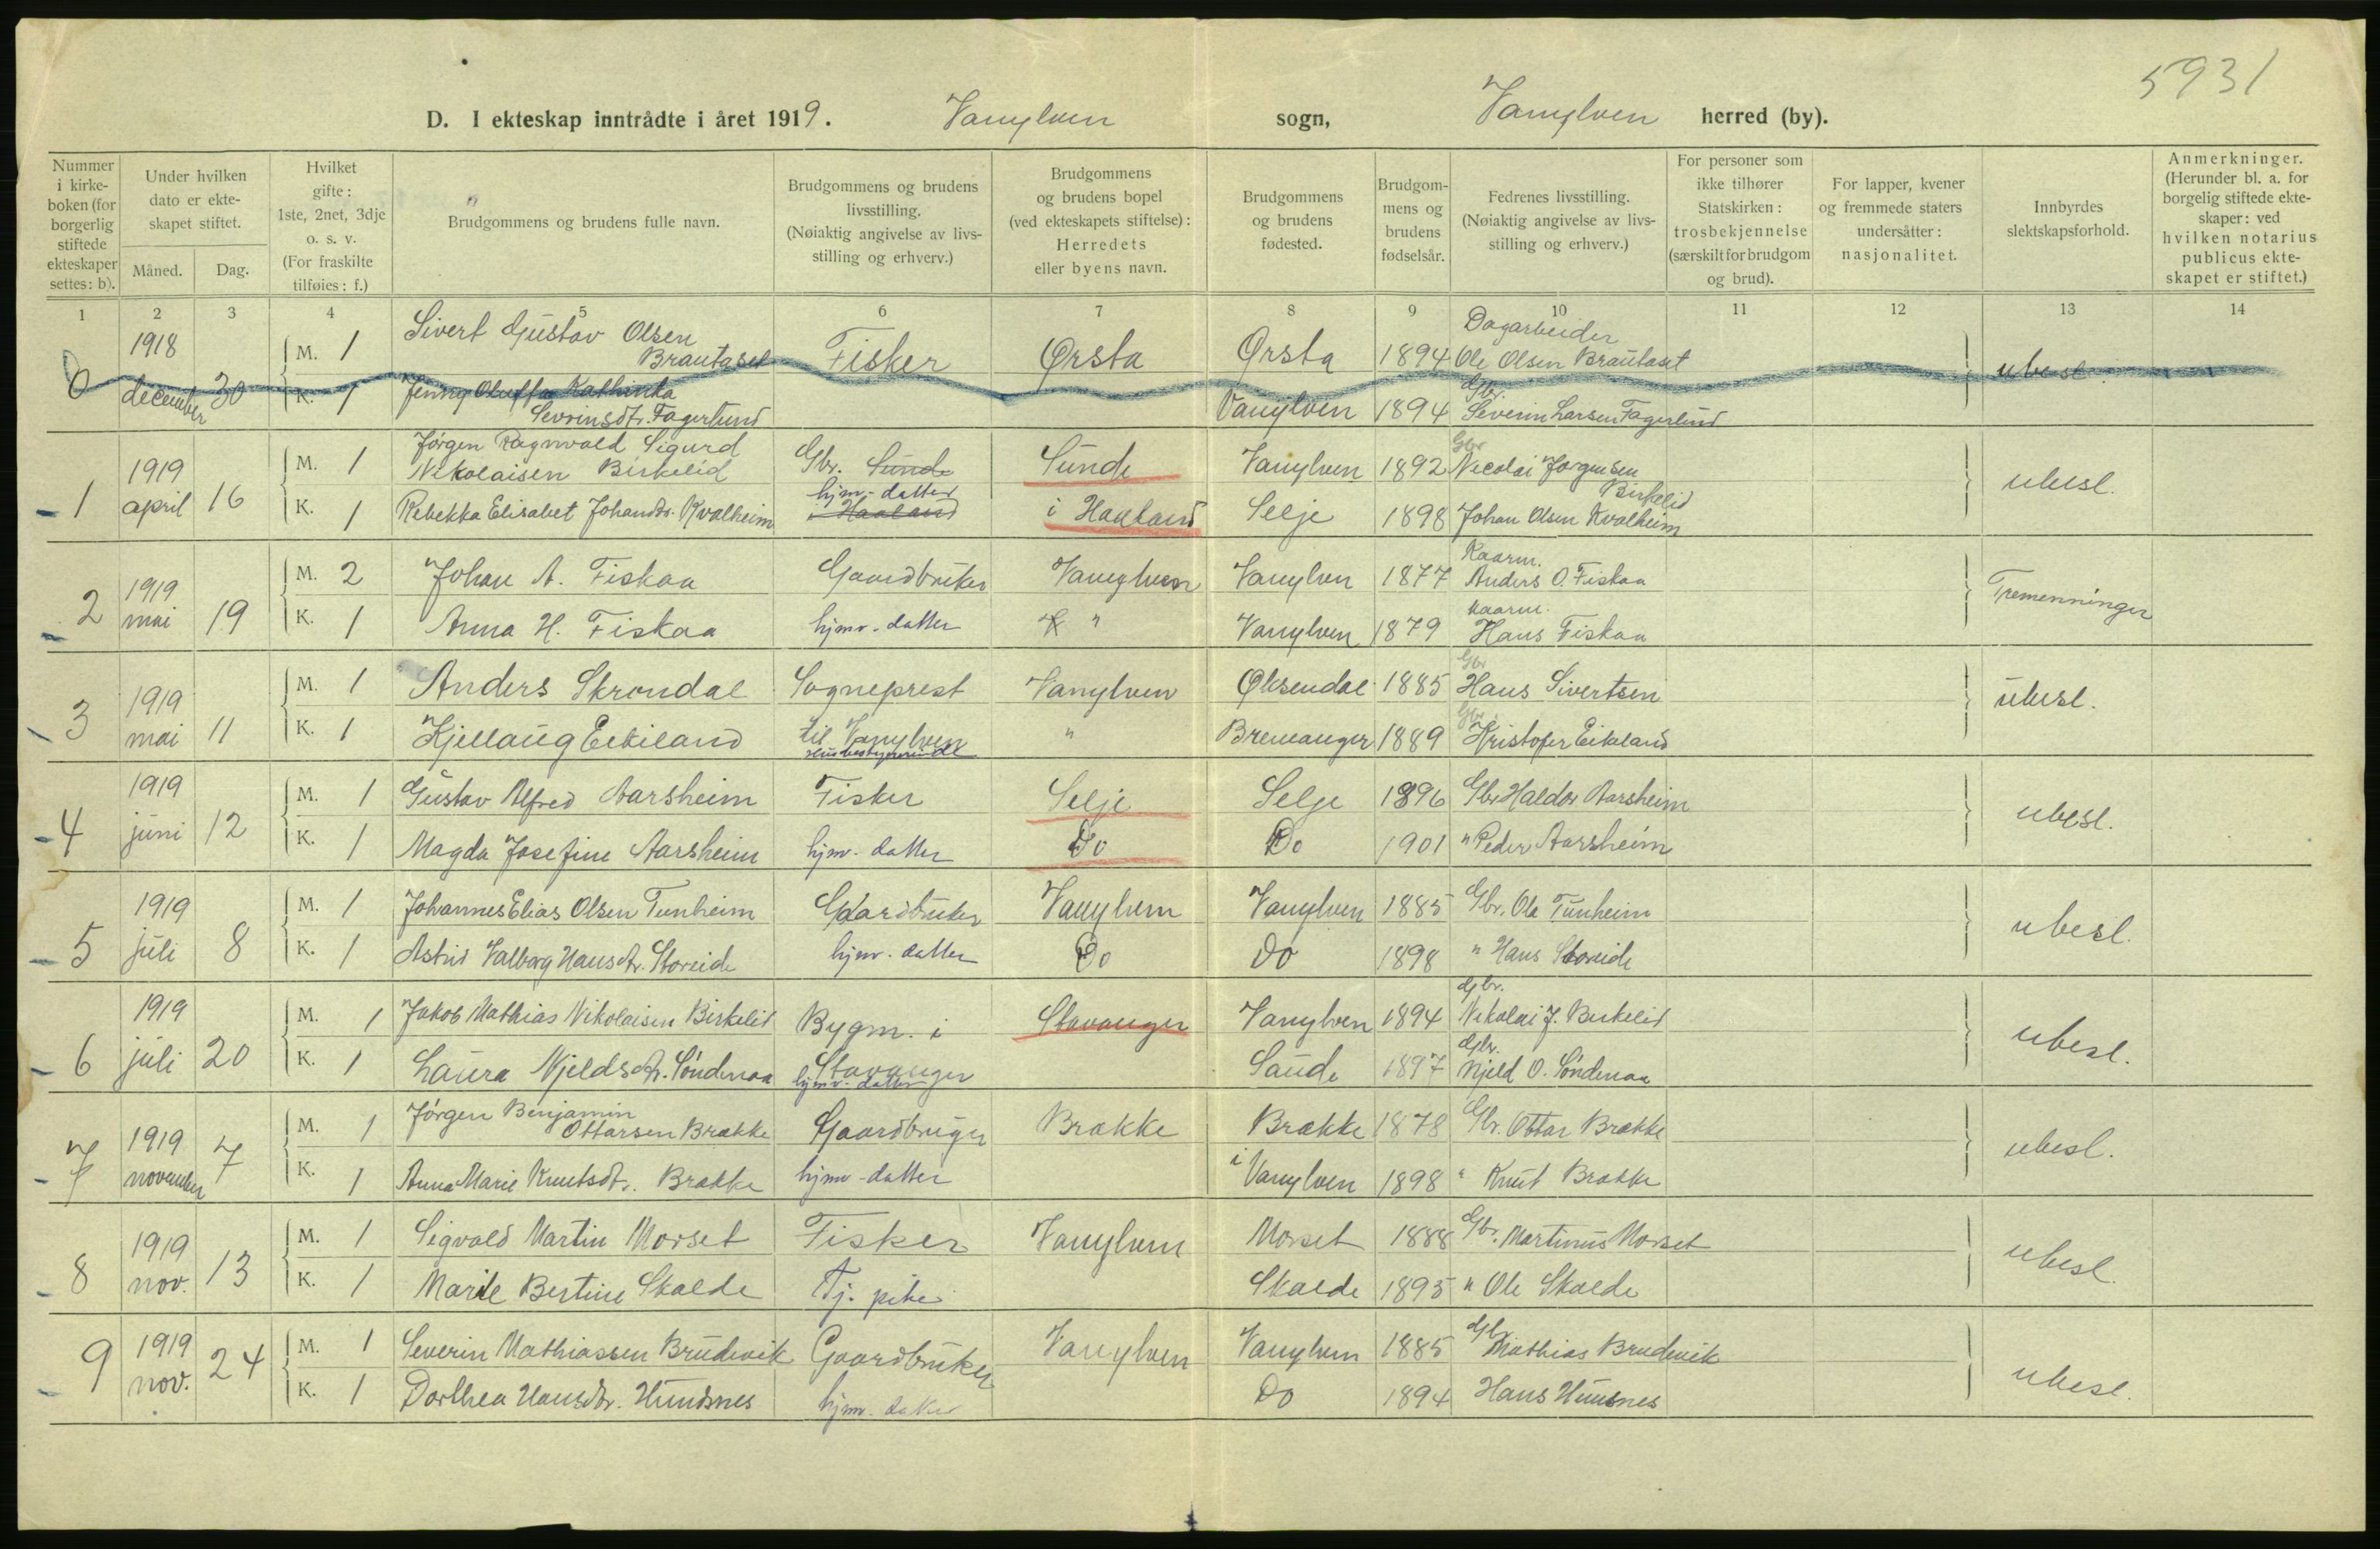 5931
D. I ekteskap inntrådte i året 1919. Vanylven sogn, Vanylven herred (by).
Nummer i kirke-boken (for borgerlig stiftede ekteskaper settes: b).
Under hvilken dato er ekte-skapet stiftet.
Måned. Dag.
Hvilket gifte: 1ste, 2net, 3dje o. s. v. (For fraskilte tilføies: f.)
Brudgommens og brudens fulle navn.
Brudgommens og brudens livsstilling. (Nøiaktig angivelse av livs-stilling og erhverv.)
Brudgommens og brudens bopel (ved ekteskapets stiftelse): Herredets eller byens navn.
Brudgommens og brudens fødested.
Brudgom-mens og brudens fødselsår.
Fedrenes livsstilling. (Nøiaktig angivelse av livs-stilling og erhverv.)
For personer som ikke tilhører Statskirken: trosbekjennelse (særskilt for brudgom og brud).
For lapper, kvener og fremmede staters undersåtter: nasjonalitet.
Innbyrdes slektskapsforhold.
Anmerkninger. (Herunder bl. a. for borgelig stiftede ekte-skaper: ved hvilken notarius publicus ekte-skapet er stiftet.)
1 2 3 4 5 6 7 8 9 10 11 12 13 14
0 1918 december 30 M. 1 Sivert Gustav Olsen Brautaset Fisker Ørsta Ørsta 1894 Dagarbeider Ole Olsen Brautaset ubesl.
K. 1 Jenny Oluffa Kathinka Sevrinsdtr. Fagerlund Vanylven 1894 Gbr. Severin Larsen Fagerlund
1 1919 april 16 M. 1 Jørgen Ragnvald Sigurd Nikolaisen Birkelid Gbr. Sunde Sunde Vanylven 1892 Gbr Nicolai Jørgensen Birkelid ubesl.
K. 1 Rebekka Elisabet Johansdtr. Kvalheim hjmv-datter i Haaland i Haaland Selje 1898 Johan Olsen Kvalheim
2 1919 mai 19 M. 2 Johan A. Fiskaa Gaardbruker Vanylven Vanylven 1877 Kaarm. Anders O. Fiskaa Tremenninger
K. 1 Anna H. Fiskaa hjmv. datter " Vanylven 1879 Kaarm. Hans Fiskaa
3 1919 mai 11 M. 1 Anders Skrondal Sogneprest Vanylven Øksendal 1885 Gbr Hans Sivertsen ubesl.
K. 1 Kjellaug Eikeland til Vanylven husbestyrerinde " Bremanger 1889 Gbr. Kristofer Eikeland
4 1919 juni 12 M. 1 Gustav Alfred Aarsheim Fisker Selje Selje 1896 Gbr Haldor Aarsheim ubesl.
K. 1 Magda Josefine Aarsheim hjmv. datter Do Do 1901 " Peder Aarsheim
5 1919 juli 8 M. 1 Johannes Elias Olsen Tunheim Gaardbruker Vanylven Vanylven 1885 Gbr. Ole Tunheim ubesl.
K. 1 Astrid Valborg Hansdtr. Storeide hjmv. datter Do Do 1898 " Hans Storeide
6 1919 juli 20 M. 1 Jakob Mathias Nikolaisen Birkelid Bygm. i Stavanger Stavanger Vanylven 1894 Gbr. Nikolai J. Birkelid ubesl.
K. 1 Laura Njeldsdtr. Søndenaa hjmv. datter Saude 1897 Gbr. Njeld O. Søndenaa
7 1919 november 7 M. 1 Jørgen Benjamin Ottarsen Brække Gaardbruger Brække Brække 1878 Gbr. Ottar Brække ubesl.
K. 1 Anna Marie Knutsdtr. Brække hjmv-datter i Vanylven 1898 " Knut Brække
8 1919 nov. 13 M. 1 Sigvald Martin Morset Fisker Vanylven Morset 1888 Gbr. Martinus Morset ubesl.
K. 1 Marie Bertine Skalde Tj. pike Skalde 1895 " Ole Skalde
9 1919 nov. 24 M. 1 Severin Mathiassen Brudevik Gaardbruker Vanylven Vanylven 1885 Gbr Mathias Brudevik ubesl.
K. 1 Dorthea Hansdtr. Hundsnes hjmv. datter Do 1894 Hans Hunsnes